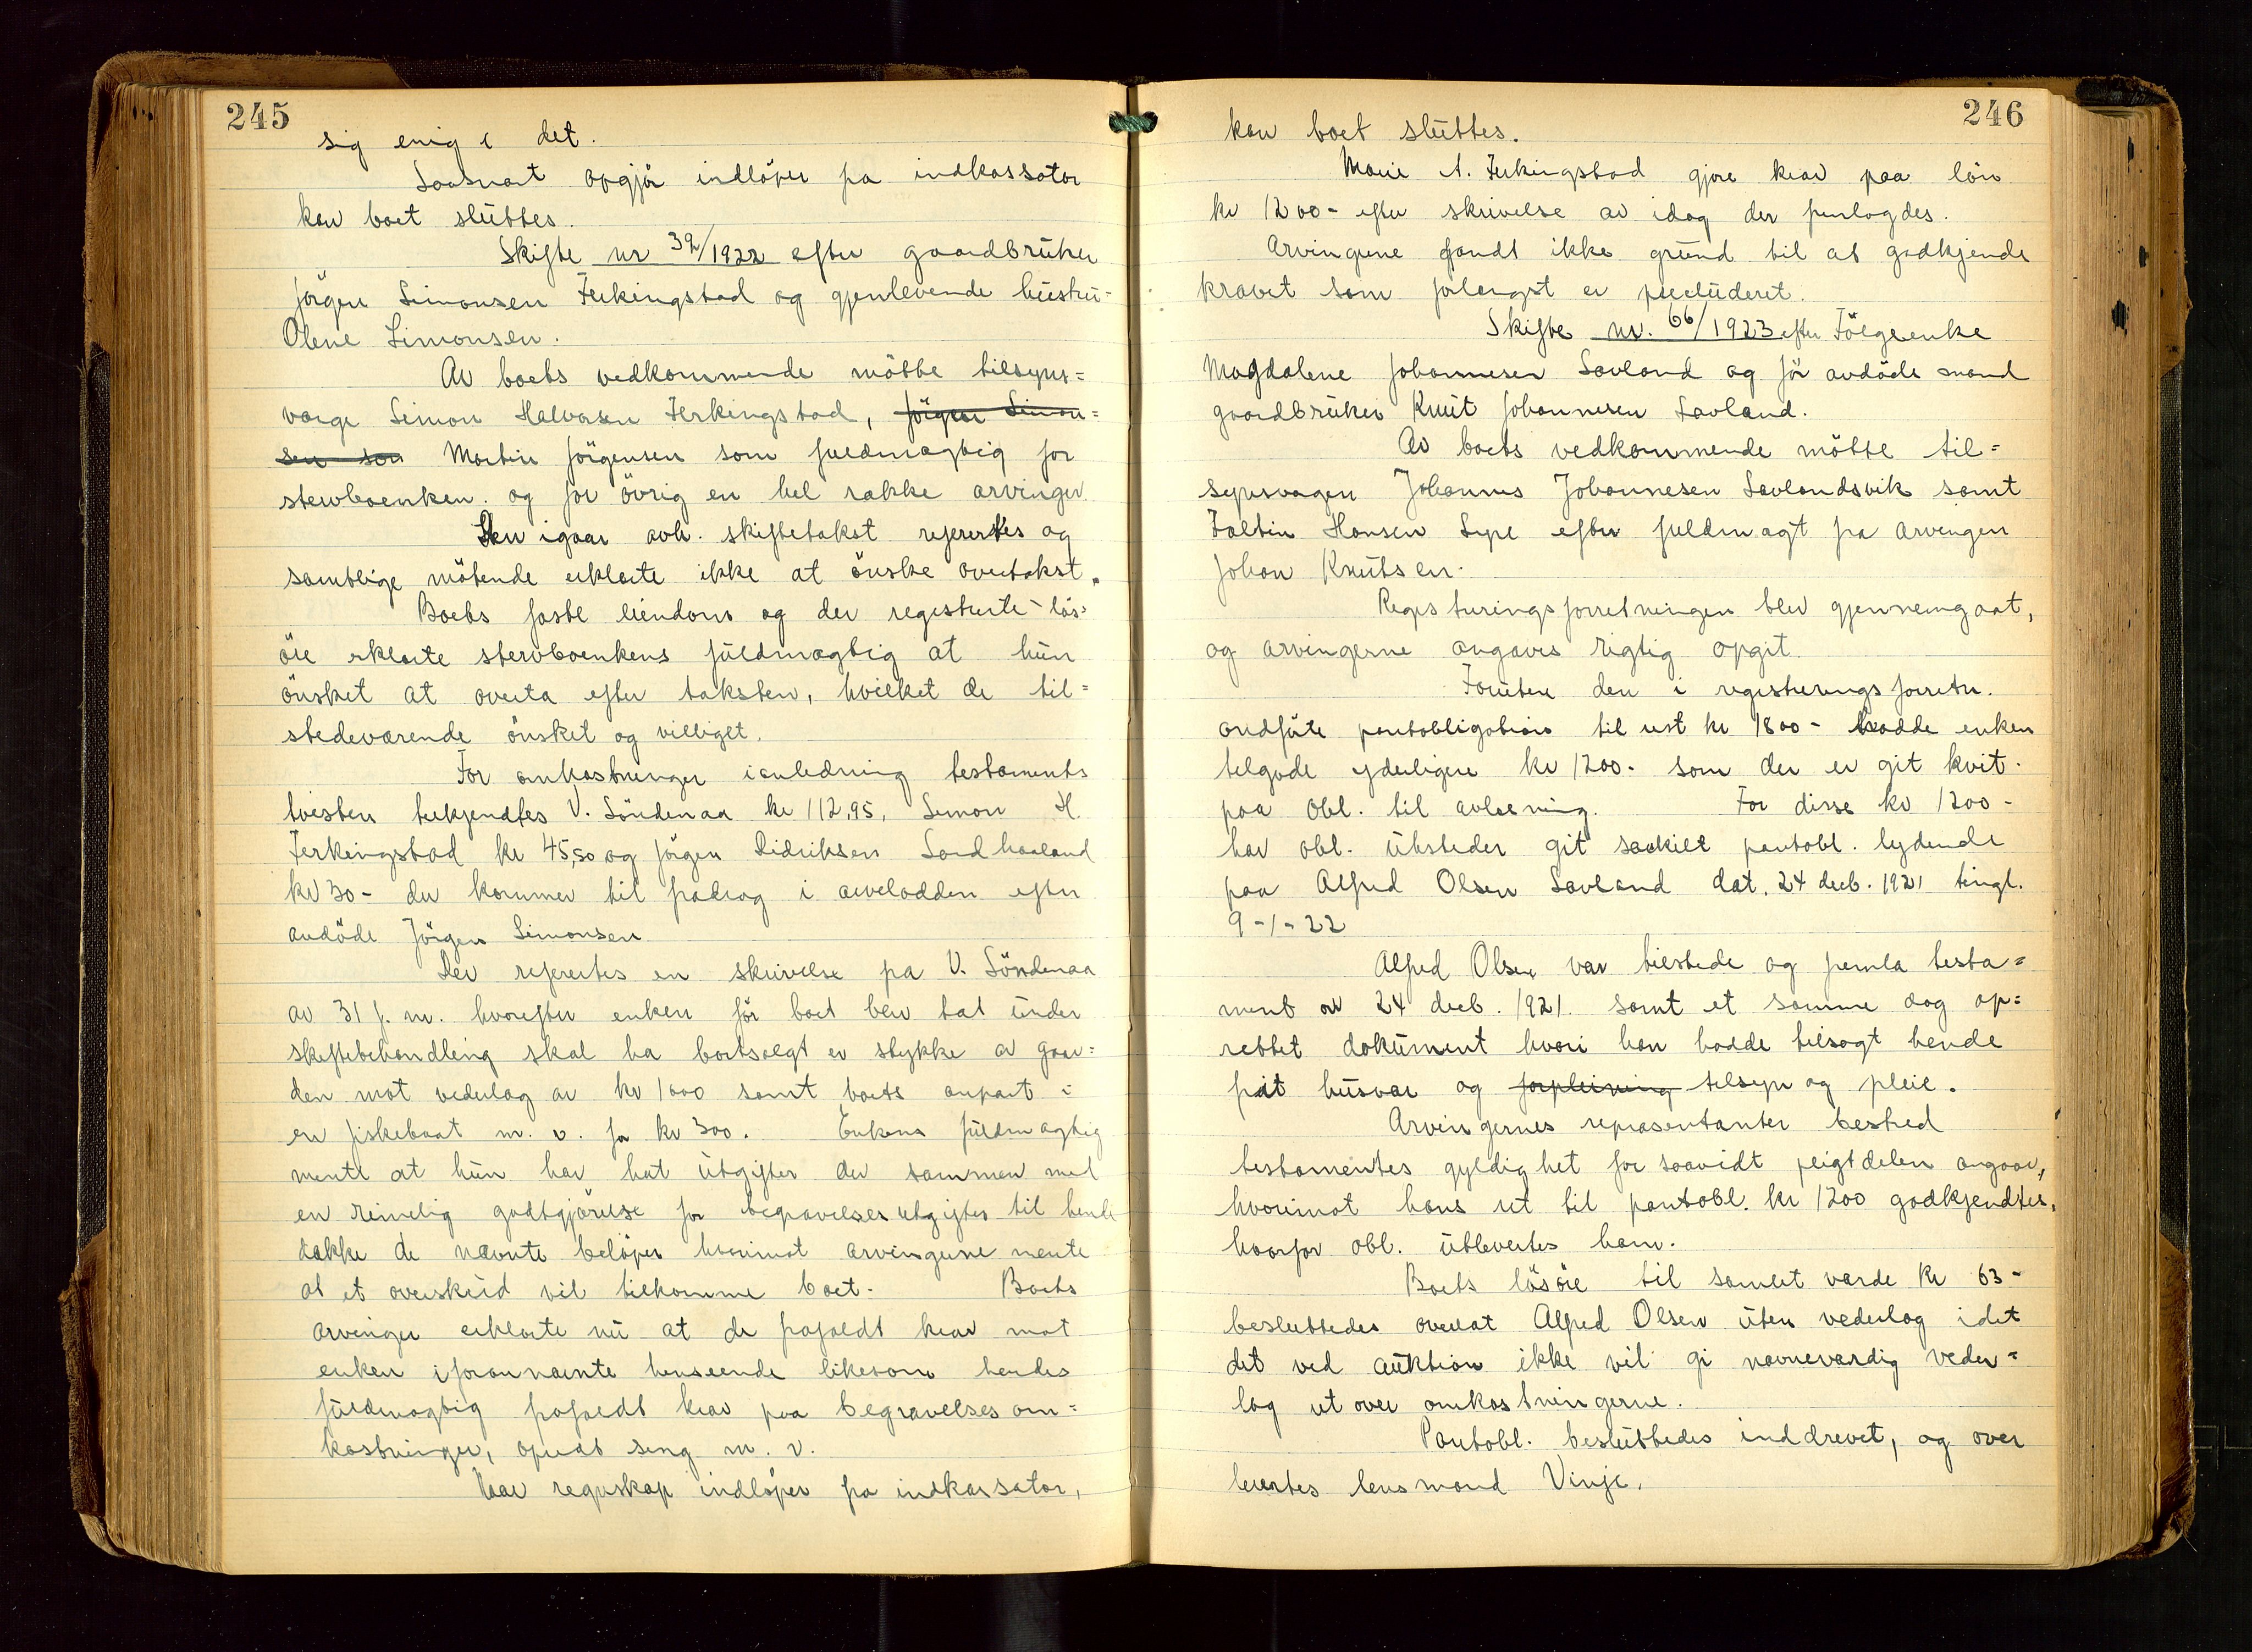 245
sig enig i det.
Saasnart opgjör indlöper fra indkassator
kan boet sluttes.
Skifte nr 39/1922 efter gaardbruker
Jörgen Simonsen Ferkingstad og gjenlevende hustru
Olene Simonsen.
Av boets vedkommende mötte tilsyns=
verge Simon Halvorsen Ferkingstad, Jörgen Simon=
sen son Martin Jörgensen som fuldmægtig for
stervboenken. og for övrig en hel række arvinger
Den igaar avh. skiftetakst refertes og
samtlige mötende erklærte ikke at önske overtakst.
Boets faste eiendom og der registrerte lös=
öre erklærte stervboenkens fuldmægtig at hun
önsket at overta efter taksten, hvilket de til=
stedeværende önsket og villiget.
For omkostninger ianledning testaments
tvisten tilkjendtes V. Söndenaa kr 112,95, Simon H.
Ferkingstad kr 45,50 og Jörgen Didriksen Sandhaaland
kr 30- der kommer til fradrag i arvelodden efter
avdöde Jörgen Simonsen
Der refertes en skrivelse fra V. Söndenaa
av 31 f. m. hvorefter enken för boet blev tat under
skiftebehandling skal ha bortsolgt et stykke av gaar=
den mot vederlag av kr 1000 samt boets anpart i
en fiskebaat m. v. for kr 300. Enkens fuldmægtig
mente at hun har hat utgifter der sammen med
en rimelig godtgjörelse for begravelsesutgifter til hende
dække de nævnte belöper hvorimot arvingerne mente
at et overskud vil tilkomme boet. Boets
arvinger erklærte nu at de frafaldt krav mot
enken i forannævnte henseende likesom hendes
fuldmægtig frafaldt krav paa begravelsesom=
kostninger, opredt seng m. v.
Naar regnskap indlöper fra indkassator,
246
kan boet sluttes.
Marie A. Ferkingstad gjore krav paa lön
kr 1200- efter skrivelse av idag der fremlagdes.
Arvingerne fandt ikke grund til at godkjende
kravet som forlengst er præcluderet.
Skifte nr. 66/1923 efter Fölgeenke
Magdalene Johannesen Sævland og för avdöde mand
gaardbruker Knut Johannesen Sævland.
Av boets vedkommende mötte til=
synsvergen Johannes Johannesen Sævlandsvik samt
Faltin Hansen Lype efter fuldmagt fra arvingen
Johan Knutsen.
Registreringsforretningen blev gjennemgaat,
og arvingerne angaves rigtig opgit.
Foruten den i registreringsforretn.
andförte pantobligation til rest kr 1800- hadde enken
tilgode yderligere kr 1200- som der er git kvit.
paa obl. til avlæsning. For disse kr 1200-
har obl. utsteder git særskilt pantobl. lydende
paa Alfred Olsen Sævland dat. 24 decb. 1921 tingl.
9-1-22
Alfred Olsen var tilstede og fremla testa=
ment av 24 decb. 1921. samt et samme dag op=
rettet dokument hvori han hadde tilsagt hende
frit husvær og forpleining tilsyn og pleie.
Arvingernes repræsentanter bestred
testamentes gyldighet for saavidt pligtdelen angaar,
hvorimot hans ret til pantobl. kr 1200 godkjendtes,
hvorfor obl. utlevertes ham.
Boets lösöre til samlet værde kr 63-
besluttedes overlat Alfred Olsen uten vederlag idet
det ved auktion ikke vil gi nævneværdig veder=
lag ut over omkostningerne.
Pantobl. besluttedes inddrevet, og over
levertes lensmand Vinje.